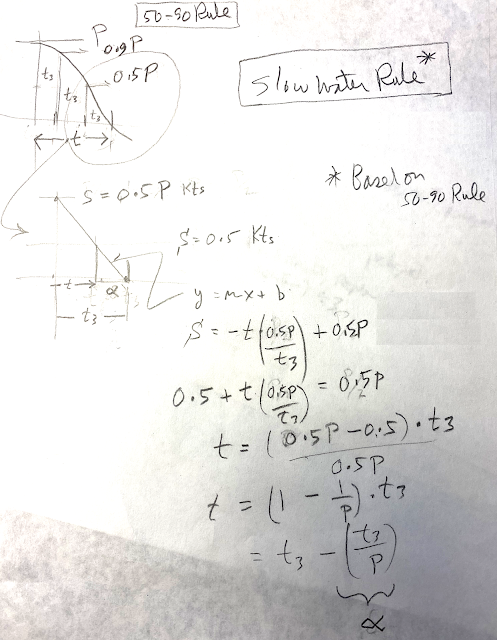 50-90 Rule
P
0.9P
0.5P
t3
t3
t3
t
Slow Water Rule *
* Based on
50-90 Rule
S = 0.5P Kts
S = 0.5 Kts
t
α
t3
y = mx + b
S = -t (0.5P / t3) + 0.5P
0.5 + t (0.5P / t3) = 0.5P
t = (0.5P - 0.5) · t3 / 0.5P
t = (1 - 1/P) · t3
= t3 - (t3 / P)
α